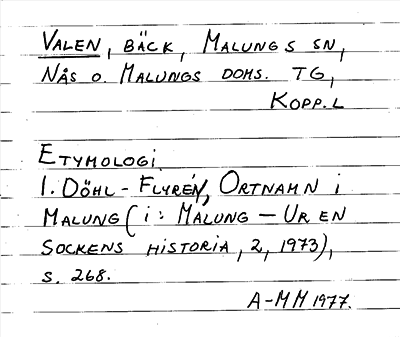 VALEN, BÄCK, MALUNGS SN,
NÅS O. MALUNGS DOMS. TG,
KOPP.L
ETYMOLOGI
I. DÖHL-FLYRÉN, ORTNAMN I
MALUNG (I: MALUNG – UR EN
SOCKENS HISTORIA, 2, 1973),
S. 268.
A-MM 1977.